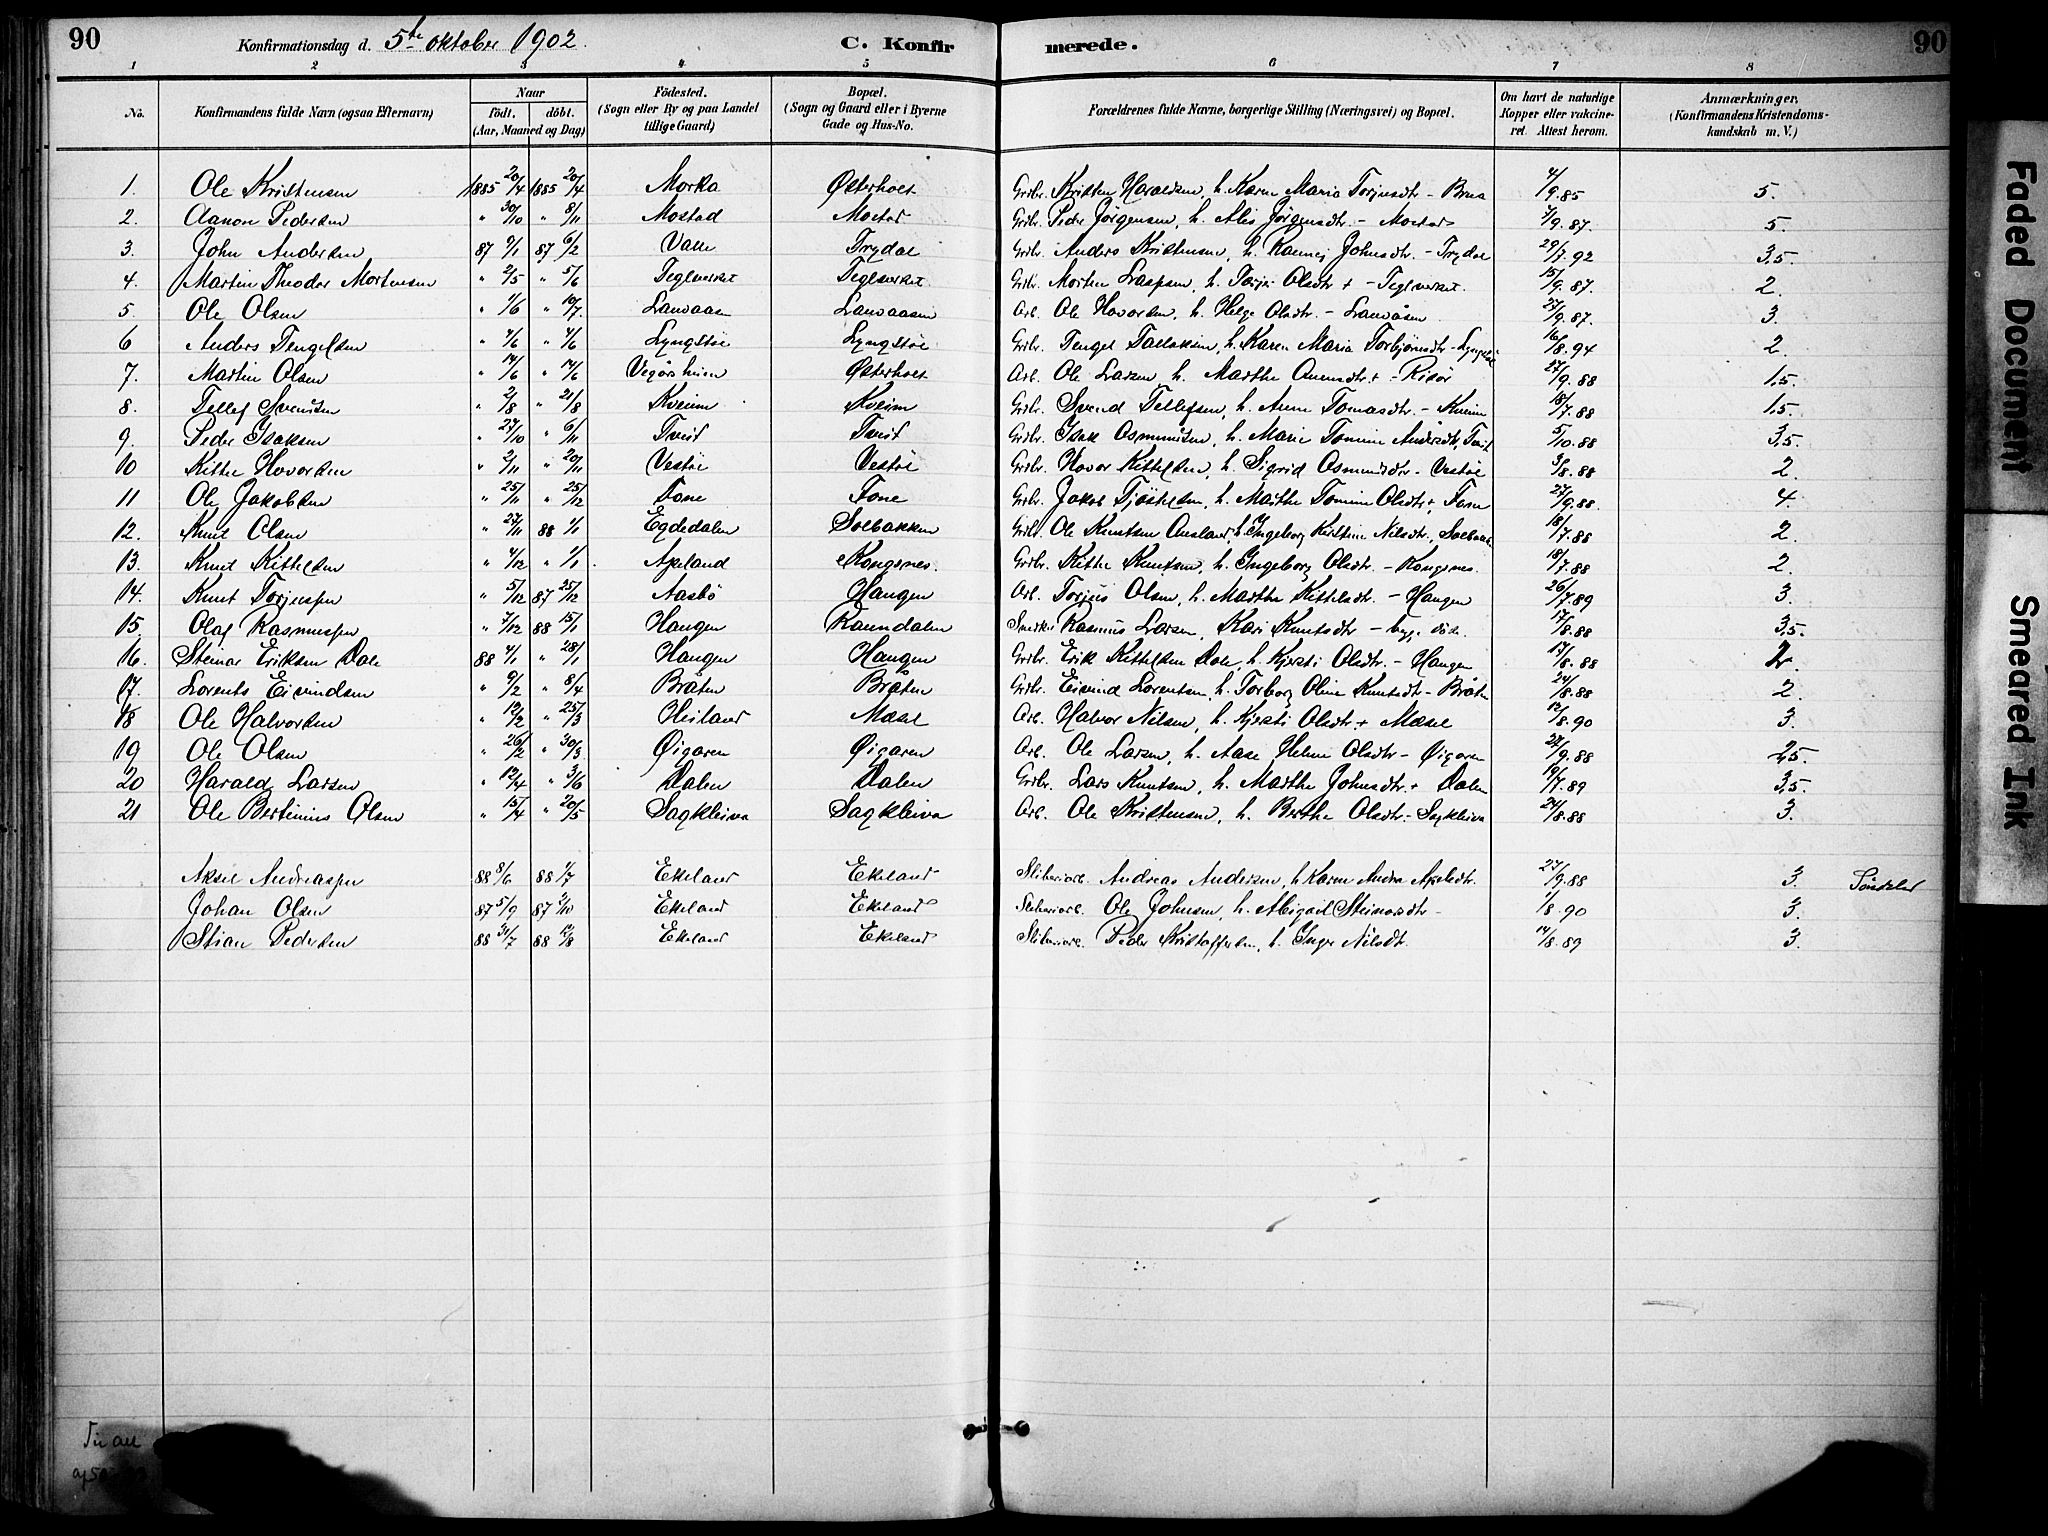 90
Konfirmationsdag d. 5te oktober 1902.
C. Konfirmerede.
90
1 2 3 4 5 6 7 8
No.
Konfirmandens fulde Navn (ogsaa Efternavn)
Naar
födt. döbt.
(Aar, Maaned og Dag)
Födested.
(Sogn eller By og paa Landet tillige Gaard)
Bopæl.
(Sogn og Gaard eller i Byerne Gade og Hus-No.
Forældrenes fulde Navne, borgerlige Stilling (Næringsvei) og Bopæl.
Om havt de naturlige Kopper eller vakcineret. Attest herom.
Anmærkninger.
(Konfirmandens Kristendomskundskab m. V.)
1. Ole Kristensen 1885 20/4 1885 20/4 Morka Østerholt Grdbr. Kristen Haraldsen, h. Karen Maria Torjusdtr - 4/9.85 5.
2. Aanon Pedersen " 30/10 " 8/11 Mostad Mostad Grdbr. Peder Jørgensen, h. Alis Jörgensdtr. - Mostad 7/9.87. 5.
3. John Andersen 87 9/1 87 6/2 Valle Trydal Grdbr. Anders Kristensen, h. Johnsdtr. - Trydal 29/7.92 3,5.
4. Martin Theodor Mortensen " 2/5 " 5/6 Teglverket Teglverket Grdbr. Morten h. Olsdtr + - Teglverket. 15/9.87. 2.
5 Ole Olsen " 1/6 " 10/7 Lauvaasen Lauvaasen Arb. Ole Hovorsen, h. Helge Olsdtr. - Lauvåsen 27/9.87. 3.
6 Anders Tengelsen " 4/6 " 4/6 Lyngstøl Lyngstøl Grdbr. Tengel Tallaksen, h. Karen Maria Torbjörnsdtr - Lyngstøl 16/8.94 2.
7. Martin Olsen " 14/6 " 14/6 Vegårsheien Østerholt Arb. Ole Larsen, h. Marthe + - Risør 27/9.88 1,5.
8. Tellef Svendsen " 2/8 " 21/8 Kveim Kveim Grdbr. Svend Tellefsen, h. Anne Tomasdtr. - Kveim 18/7.88 1,5.
9. Peder Isaksen " 27/10 " 6/11 Tveit Tveit Grdbr. Isak Osmundsen, h. Marie Tomine Andersdtr, Tveit 5/10.88 3,5.
10 Kittel Hovorsen " 2/11 " 20/11 Vestøl Vestøl Grdbr. Hovor Kittelsen, h. Sigrid Osmundsdtr - Vestøl 3/8.88 2.
11 Ole Jakobsen " 25/11 " 25/12 Fone Fone Grdbr. Jakob Tjöstelsen, h. Marthe Tomine Olsdtr +, Fone 27/9.88. 4.
12. Knut Olsen " 27/11 88 1/1 Egdedalen Solbakken Grdbr. Ole Knutsen Ausland, h. Ingeborg Kirstine Nilsdtr, Solbakken 18/7.88 2.
13. Knut Kittelsen " 4/12 " 1/1 Apeland Kongsnes. Grdbr. Kittel Knutsen, h. Ingeborg Olsdtr. - Kongsnes. 18/7.88 2.
14. Knut Torjussen " 5/12 87 25/12 Aasbö Haugen Arb. Torjus Olsen, h. Marthe Kittelsdtr. - Haugen 26/7.89 3.
15. Olaf Rasmussen " 7/12 88 15/1 Haugen Raundalen Rasmus Larsen, Kari Knutsdtr - døde. 17/8.88 3,5.
16. Steinar Eriksen Dale 88 4/1 " 28/1 Haugen Haugen Grdbr. Erik Kittelsen Dale, h. Kjersti Olsdtr. - Haugen 17/8.88 2.
17. Lorents Eivindsen " 9/2 " 8/4 Bråten Bråten Grdbr. Eivind Lorentsen, h. Torborg Oline Knutsdtr - Bråten 24/8.88 2.
18 Ole Halvorsen " 12/2 " 25/3 Heiland Mæsel Arb. Halvor Nilsen, h. Kjersti Olsdtr + Mæsel 12/8.90 3.
19 Ole Olsen " 26/2 " 30/3 Øigaren Øigaren Arb. Ole Larsen, h. Aase Helene Olsdtr - Øigaren 22/9.88 2,5.
20 Harald Larsen " 12/4 " 3/6 Dalen Dalen Grdbr. Lars Knutsen, h. Marthe Johnsdtr. + Dalen 19/7.89 3,5.
21 Ole Bertinius Olsen " 15/4 " 20/5 Sagkleiva Sagkleiva Arb. Ole Kristensen, h. Berthe Olsdtr. - Sagkleiva 24/8.88 3.
Aksel Andreassen 88 8/6 88 1/7 Ekeland Ekeland Sliberiarb. Andreas Andersen, h. Karen Andrea 27/9.88 3. Söndeled
Johan Olsen 87 5/9 87 2/10 Ekeland Ekeland Sliberiarb. Ole Johnsen, h. Abigael Steinarsdtr - 1/8.90 3.
Stian Pedersen 88 31/7 88 12/8 Ekeland Ekeland Sliberiarb. Peder Kristoffersen, h. Inger Nilsdtr. 14/8.89 3.
Faded Document
Smeared Ink